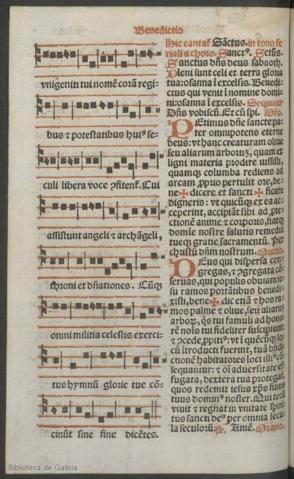 Benedictio
vnigeniti tui nomē corā regi-
bus ⁊ potestatibus huiꝰ se-
culi libera voce ꝓfitenť. Cui
assistunt angeli ⁊ archāgeli,
throni et dn̄ationes. Cūqꝫ
omni militia celestis exerci-
tus hymnū glorie tue cō-
cinūt sine fine dicētes.
Hic cantať Sāctus. in tono fe
rialis choro. Sanctꝰ. Sctūs.
Sanctus dn̄s deus sabaoth.
Pleni sunt celi et terra gloria
tua: osanna ī excelso. Benedi-
ctus qui venit ī nomine domi
ni: osanna ī excelso. Sequiť
Dn̄s vobiscū. Et cū spī. Or̄o.
PEtimus dn̄e sancte pa-
ter omnipotens eterne
deus: vt hanc creaturam oliue
seu aliarum arborū, quam ex
ligni materia prodire iussisti,
quamqꝫ columba rediens ad
arcam ꝓprio pertulit ore, be-
ne✠dicere et sancti✠ficare
digneris: vt quicūqꝫ ex ea ac-
ceperint, accipiāt sibi ad ꝓte-
ctionē anime ⁊ corporis, fiatqꝫ
domine nostre salutis remediū
tueqꝫ gratie sacramentū. Per
christū dn̄m nostrum.
DEus qui dispersa con-
gregas, ⁊ ꝯgregata cō-
seruas, qui populis obuiam ie-
su ramos portātibus benedi-
xisti, bene✠dic etiā ⁊ hos ra-
mos palme ⁊ oliue, seu aliarū
arborū, quos tui famuli ad hono-
rē nois tui fideliter suscipiunt
vt ī quēcūqꝫ lo-
cū introducti fuerint, tuā bn̄di-
ctionē habitatores loci illiꝰ cō-
sequantur: ⁊ oī aduersitate ef-
fugata, dextera tua ꝓtegat
quos redemit iesus xp̄s filius
tuus dominꝰ noster. Qui tecū
viuit ⁊ regnat in vnitate spiri-
tus sancti deꝰ per omnia secu
la seculorū. ℟. Amē. Oratio.
Biblioteca de Galicia